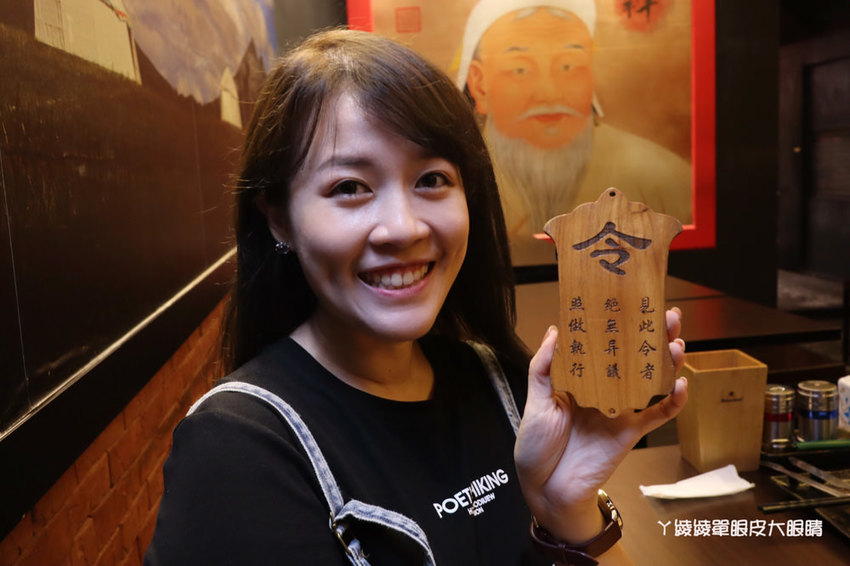 令
見此令者
絕無异議
照做執行
POET
KING
ㄚ綾綾單眼皮大眼睛